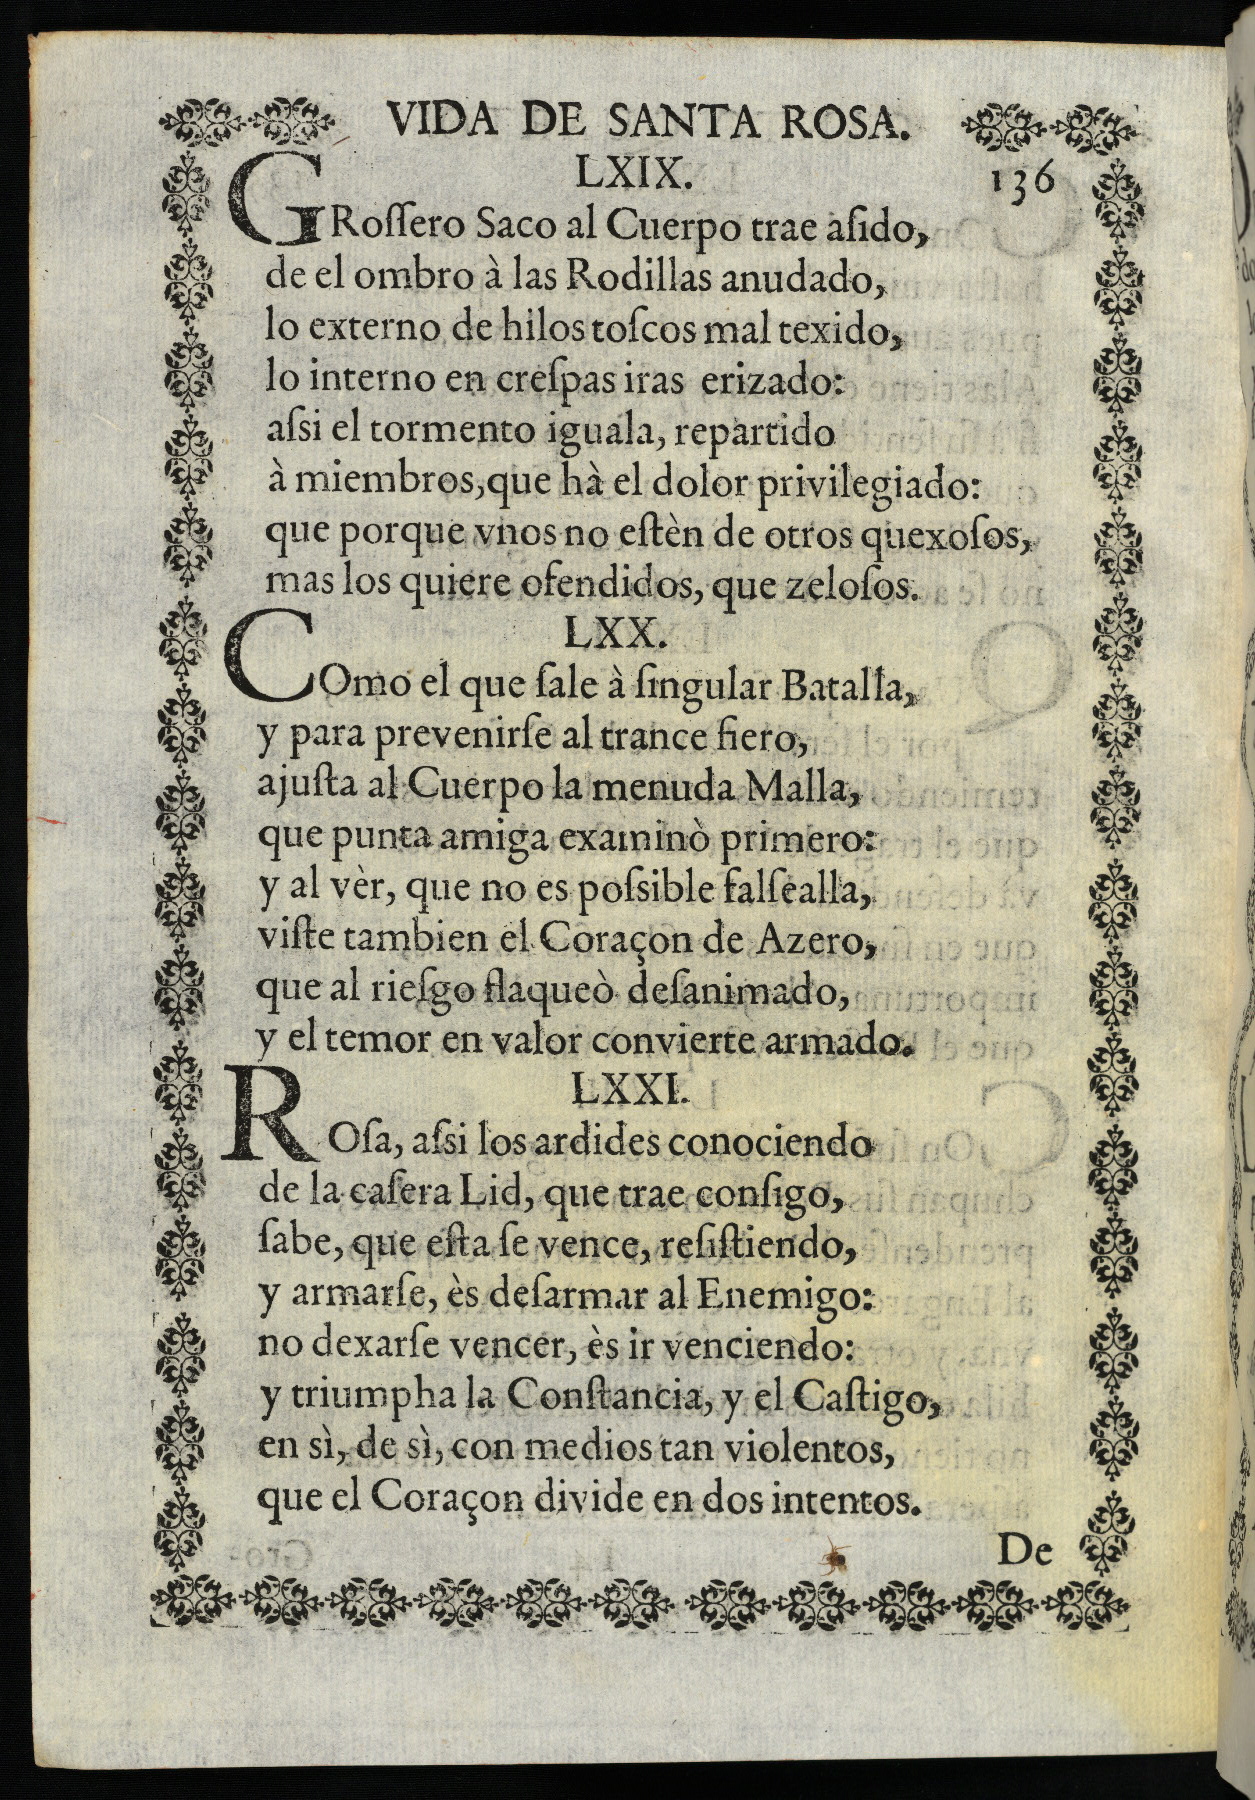 VIDA DE SANTA ROSA.
LXIX.
136
GRoſſero Saco al Cuerpo trae aſido,
de el ombro à las Rodillas anudado,
lo externo de hilos toſcos mal texido,
lo interno en creſpas iras erizado:
aſsi el tormento iguala, repartido
à miembros, que hà el dolor privilegiado:
que porque vnos no eſtèn de otros quexoſos,
mas los quiere ofendidos, que zeloſos.
LXX.
COmo el que ſale à ſingular Batalla,
y para prevenirſe al trance fiero,
ajuſta al Cuerpo la menuda Malla,
que punta amiga examinò primero:
y al vèr, que no es poſsible falſealla,
viſte tambien el Coraçon de Azero,
que al rieſgo flaqueò deſanimado,
y el temor en valor convierte armado.
LXXI.
ROſa, aſsi los ardides conociendo
de la caſera Lid, que trae conſigo,
ſabe, que eſta ſe vence, reſiſtiendo,
y armarſe, ès deſarmar al Enemigo:
no dexarſe vencer, ès ir venciendo:
y triumpha la Conſtancia, y el Caſtigo,
en sì, de sì, con medios tan violentos,
que el Coraçon divide en dos intentos.
De